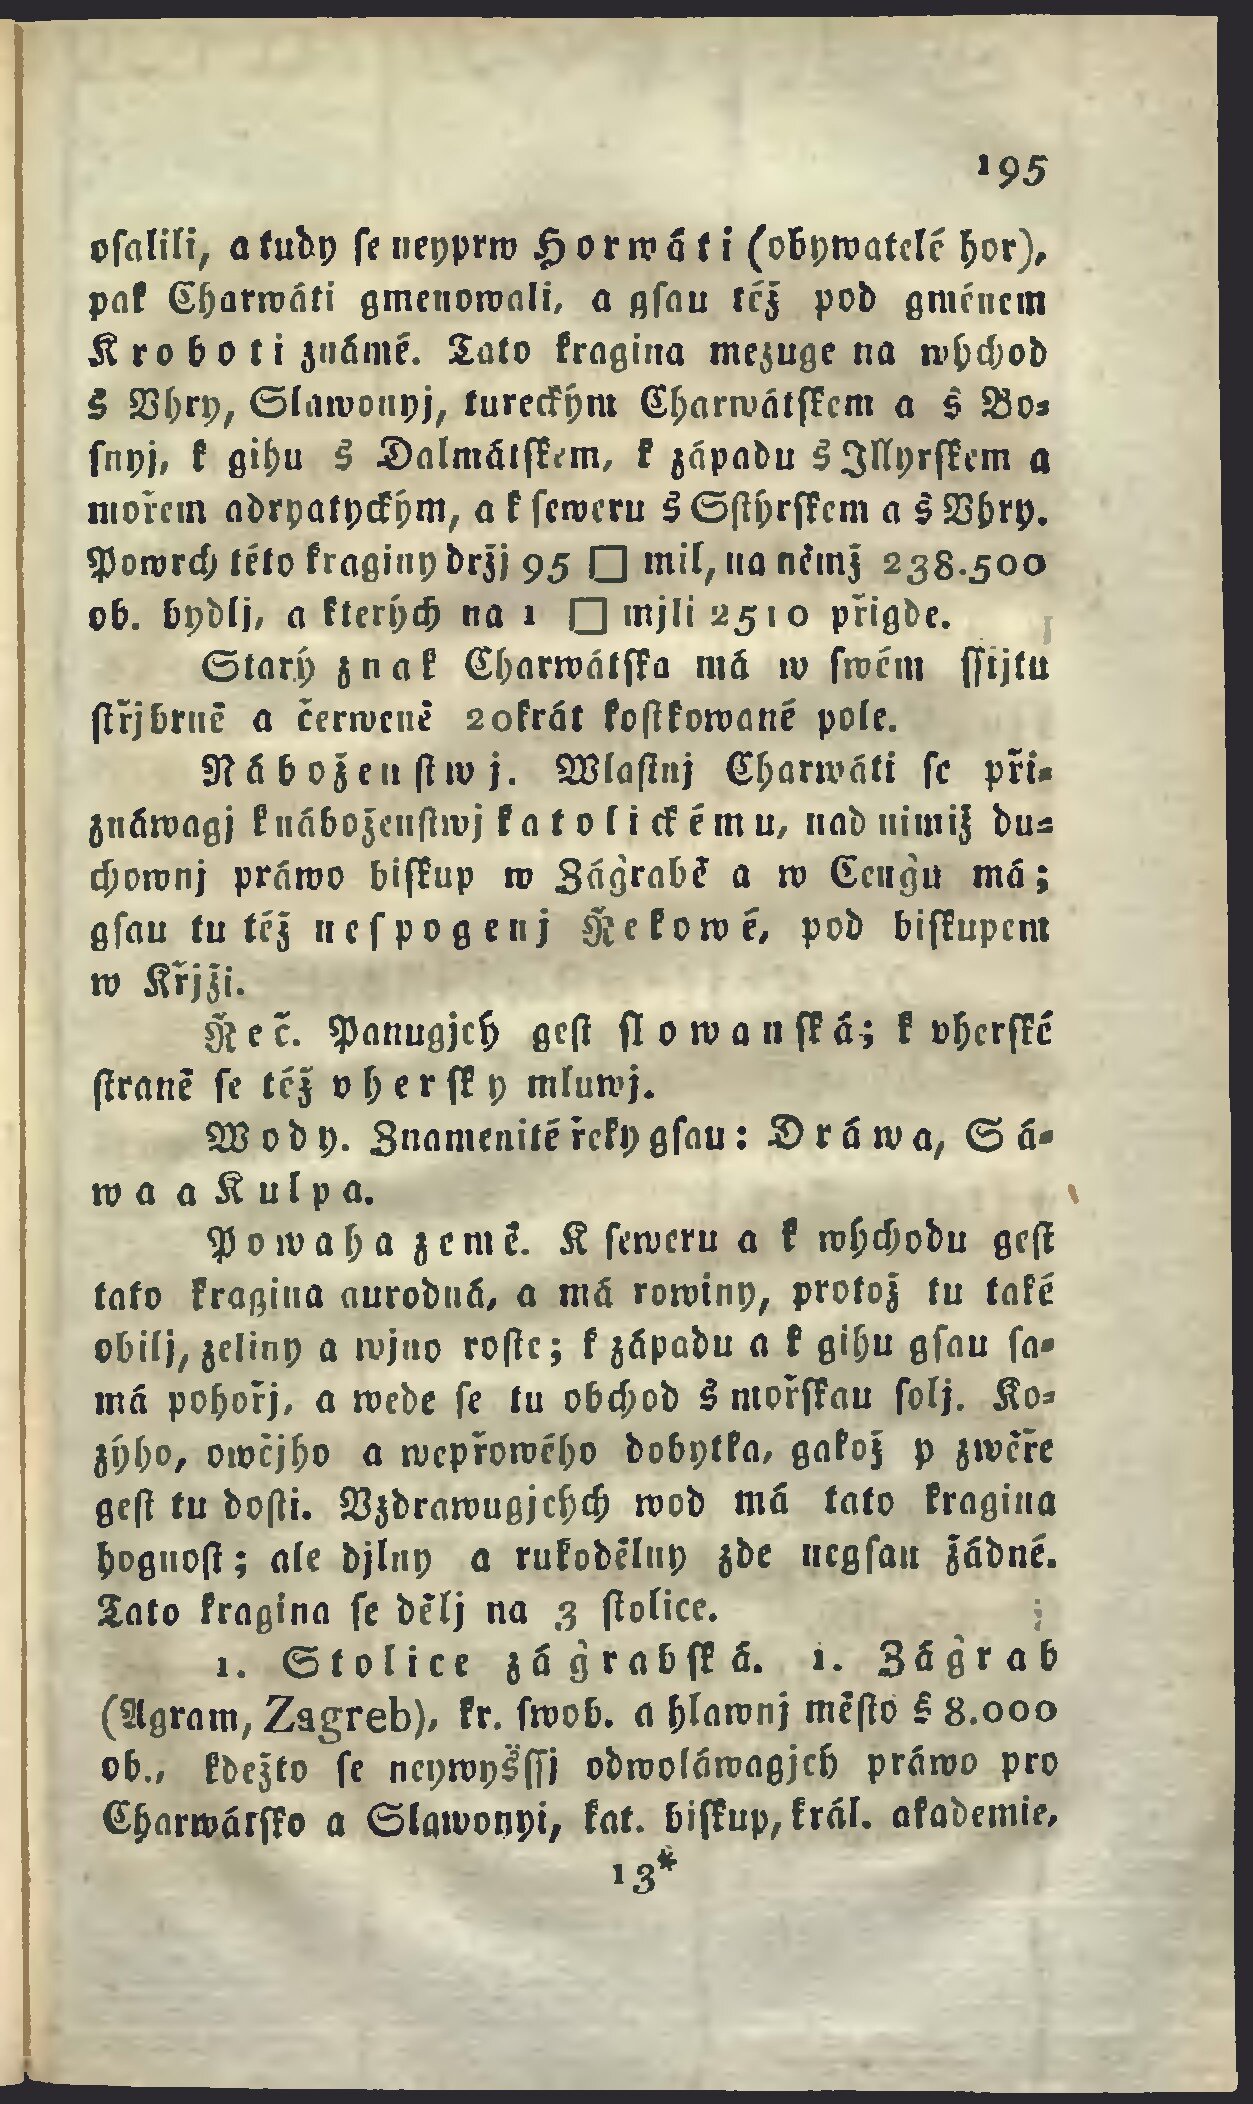 195
oſalili, a tudy ſe neyprw Horwáti (obywatelé hor),
pak Charwáti gmenowali, a gſau též pod gménem
Kroboti známé. Tato kragina mezuge na wýchod
š Vhry, Slawonyj, tureckým Charwátſkem a š Bo-
ſnyj, k gihu š Dalmátſkem, k západu š Illyrſkem a
mořem adryatyckým, a k ſeweru š Sſtýrſkem a š Vhry.
Powrch této kraginy držj 95 □ mil, na němž 238.500
ob. bydlj, a kterých na 1 □ mjli 2510 přigde.
Starý znak Charwátſka má w ſwém ſſtjtu
ſtřjbrně a čerweně 20krát koſtkowané pole.
Náboženſtwj. Wlaſtnj Charwáti ſe při-
znáwagj k náboženſtwj katolickému, nad nimiž du-
chownj práwo biſkup w Zág̀rabě a w Ceng̀u má;
gſau tu též neſpogenj Řekowé, pod biſkupem
w Křjži.
Řeč. Panugjcý geſt ſlowanſká; k vherſké
ſtraně ſe též vherſky mluwj.
Wody. Znamenité řeky gſau: Dráwa, Sá-
wa a Kulpa.
Powaha země. K ſeweru a k wýchodu geſt
tato kragina aurodná, a má rowiny, protož tu také
obilj, zeliny a wjno roſte; k západu a k gihu gſau ſa-
má pohořj, a wede ſe tu obchod š mořſkau ſolj. Ko-
zýho, owčjho a wepřowého dobytka, gakož y zwěře
geſt tu doſti. Vzdrawugjcých wod má tato kragina
hognoſt; ale djlny a rukodělny zde negſau žádné.
Tato kragina ſe dělj na 3 ſtolice.
1. Stolice zág̀rabſká. 1. Zág̀rab
(Agram, Zagreb), kr. ſwob. a hlawnj měſto š 8.000
ob., kdežto ſe neywyšſſj odwoláwagjcý práwo pro
Charwátſko a Slawonyi, kat. biſkup, král. akademie,
13*